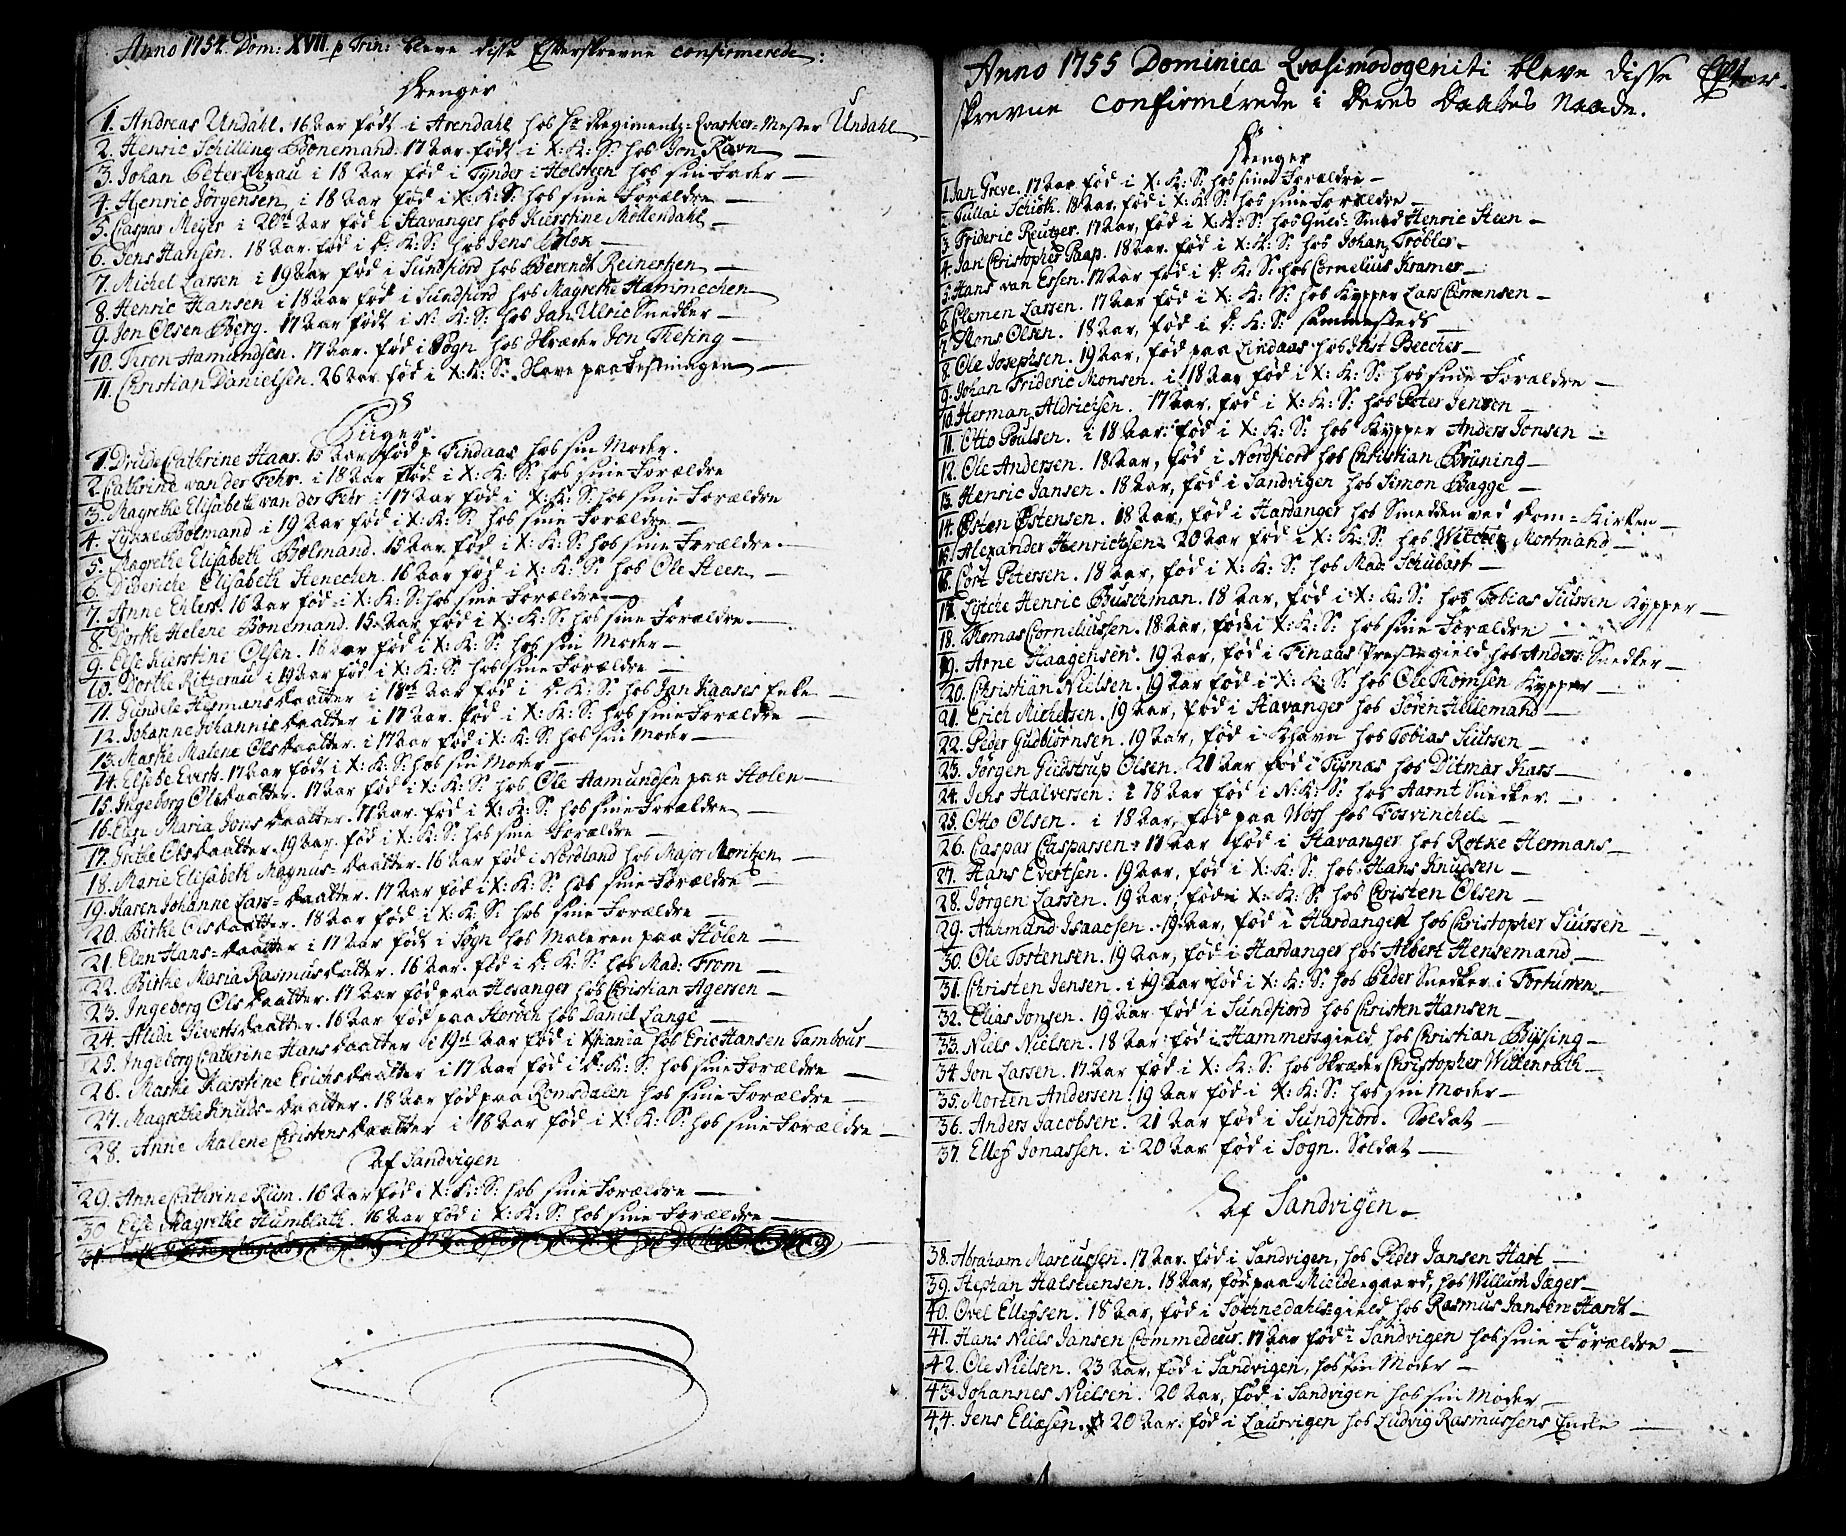 Anno 1754. Dom: XVII. p Trin: bleve disse Efterskrevne confirmerede:
Drenger
1. Andreas Undahl. 16 Aar født i Arendahl hos Hr Regiments-Qvarteer-Mester Undahl
2. Henric Schilling Bonemand. 17 Aar født i X: K: S: hos Jon Ravn —
3. Johan Peter Clerau i 18 Aar fød i Tynder i Holsteen hos sin Fader —
4. Henric Jørgensen i 18 Aar fød i X: K: S: hos sine Forældre —
5. Caspar Meyer i 20de Aar fød i Stavanger hos Kierstine Mollendahl —
6. Jens Hansen. 18 Aar fød i D: K: S: hos Jens Blok —
7. Michel Larsen i 19 Aar fød i Sundfiord hos Berendt Reinertzen —
8. Henric Hansen i 18 Aar fød i Sundfiord hos Magrethe Hammechen
9. Jon Olsen Berg. 17 Aar født i N: K: S: hos Jan Ulric Snedker —
10. Iron Aamundsen. 17 Aar. fød i Sogn hos Skræder Jon Theting —
11. Christian Danielsen. 26 Aar fød i X: K: S: Slave paa Festningen —
Piiger.
1. Drude Cathrine Haar. 15 Aar fød p Findaas hos sin Moder.
2. Cathrine van der Fehr. i 18 Aar fød i X: K: S: hos sine Forældre
3. Magrethe Elisabeth van der Fehr. 17 Aar fød i X: K: S: hos sine Forældre
4. Lykke Bolmand i 19 Aar fød i X: K: S: hos sine Forældre —
5. Magrethe Elisabeth Bolmand. 15 Aar fød i X: K: S: hos sine Forældre —
6. Dideriche Elisabeth Stenechen. 16 Aar fød i X: K: S: hos Ole Steen —
7. Anne Ehlert. 16 Aar fød i X: K: S: hos sine Forældre
8. Dorthe Helene Bonemand. 15 Aar fød i X: K: S: hos sine Forældre —
9. Else Kierstine Olsen. 16 Aar fød i X: K: S: hos sin Moder —
10. Dorthe Ritzerau i 19 Aar fød i X: K: S: hos sine Forældre —
11. Gundele Hermansdaatter i 18de Aar fød i D: K: S: hos Jan Kaases Enke —
12. Johanne Johannisdaatter i 17 Aar fød i X: K: S: hos sine Forældre —
13. Marthe Malene Olsdaatter. i 17 Aar fød i X: K: S: hos sin Moder —
14. Elsebe Everts. 17 Aar født i X: K: S: hos sin Moder —
15. Ingeborg Olsdaatter. 17 Aar fød i X: K: S: hos Ole Aamundsen paa Stølen —
16. Elen Maria Jonsdaatter. 17 Aar. fød i X: K: S: hos sine Forældre —
17. Grethe Olsdaatter. 19 Aar. fød i X: K: S: hos sine Forældre —
18. Marie Elisabeth Magnus-daatter. 16 Aar fød i Nordland hos Major Moritzen —
19. Karen Johanne Lars-daatter. 17 Aar fød i X: K: S: hos sine Forældre —
20. Birthe Olsdaatter. 18 Aar fød i X: K: S: hos sine Forældre —
21. Elen Hans-daatter i 17 Aar født i Sogn hos Maleren paa Stølen —
22. Birthe Maria Rasmusdatter. 16 Aar. fød i D: K: S: hos Mad: From —
23. Ingeborg Olsdaatter. 17 Aar fød paa Hosanger hos Christian Agersen —
24. Alida Sivertsdaatter. 16 Aar fød paa Stordøen hos Daniel Lange —
25. Ingeborg Cathrine Hansdaatter i 19de Aar fød i Xstiania hos Eric Hansen Tambour —
26. Marthe Kierstine Erichsdaatter i 17 Aar fød i D: K: S: hos sine Forældre —
27. Magrethe Knuds-daatter. 18 Aar fød paa Romsdalen hos sine Forældre —
28. Anne Malene Christensdaatter i 18 Aar fød i X: K: S: hos sine Forældre —
Af Sandvigen
29. Anne Cathrine Rüm. 16 Aar fød i X: K: S: hos sine Forældre —
30. Else Magrethe Humblath. 16 Aar fød i X: K: S: hos sine Forældre —
31.
Anno 1755 Dominica Qvasimodogeniti bleve disse Efter-
skrevne confirmerede i deres Daabes Naade.
Drenger
1. Jan Greve. 17 Aar fød i X: K: S: hos sine Forældre —
2. Tallai Schiøth. 18 Aar, fød i X: K: S: hos sine Forældre —
3. Frideric Reutzer. 17 Aar, fød i X: K: S: hos Guld-Smed Henric Steen —
4. Jan Christopher Paap. 18 Aar fød i X: K: S: hos Johan Trøbler —
5. Hans van Essen. 17 Aar fød i D: K: S: hos Cornelius Kramer —
6. Clemen Larsen. 17 Aar fød i X: K: S: hos Kypper Lars Clemensen —
7. Mons Olsen. 18 Aar, fød i D: K: S: sammesteds —
8. Ole Josephsen. 19 Aar, fød paa Lindaas hos Just Beecher —
9. Johan Frideric Monsen. i 18 Aar fød i X: K: S: hos sine Forældre —
10. Herman Aldrichsen. 17 Aar, fød i X: K: S: hos Peter Jensen —
11. Otto Poulsen. i 18 Aar: fød i X: K: S: hos Kypper Anders Jonsen —
12. Ole Andersen. 18 Aar, fød i Nordfiord hos Christian Brüning —
13. Henric Jansen. 18 Aar, fød i Sandvigen hos Simon Bagge —
14. Østen Østensen. 18 Aar, fød i Hardanger hos Smedden ved Dom-Kirken —
15. Alexander Henrichsen. 20 Aar fød i X: K: S: hos Mortmand —
16. Cort Petersen. 18 Aar, fød i X: K: S: hos Mad: Schubart —
17. Lytche Henric Buschman. 18 Aar, fød i X: K: S: hos Tobias Siursen Kypper —
18. Thomas Corneliussen. 18 Aar, fød i X: K: S: hos sine Forældre —
19. Arne Haagensen. 19 Aar, fød i Finaas Præstegield hos Anders Snedker —
20. Christian Nielsen. 19 Aar fød i X: K: S: hos Ole Thomsen Kypper —
21. Erich Michelsen. 19 Aar, fød i Stavanger hos Søren Hellemand —
22. Peder Gudbiørnsen. 19 Aar, fød i Khavn hos Tobias Siursen —
23. Jørgen Gieldstrup Olsen. 21 Aar fød i Tysnæs hos Ditmar Kaas —
24. Jens Halversen. i 18 Aar fød i N: K: S: hos Aarnt Snedker —
25. Otto Olsen. i 18 Aar, fød paa Voss hos Tosvinchel —
26. Caspar Casparsen. 17 Aar fød i Stavanger hos Rotke Hermans —
27. Hans Evertsen. 19 Aar, fød i X: K: S: hos Hans Knudsen —
28. Jørgen Larsen. 19 Aar, fød i X: K: S: hos Christen Olsen —
29. Aamund Isaacsen. 19 Aar, fød i Hardanger hos Christopher Siursen —
30. Ole Tostensen. 19 Aar, fød i Hardanger hos Albert Hensemand —
31. Christen Jensen. i 19 Aar fød i X: K: S: hos Peder Snedker i Fortunen —
32. Elias Jonsen. 19 Aar fød i Sundfiord hos Christen Hansen —
33. Niels Nielsen. 18 Aar fød i Hammersgield hos Christian Büssing —
34. Jon Larsen. 17 Aar fød i X: K: S: hos Skræder Christopher Wittenrath —
35. Morten Andersen. 19 Aar fød i X: K: S: hos sin Moder —
36. Anders Jacobsen. 21 Aar fød i Sundfiord. Soldat —
37. Ellef Jonassen. i 20 Aar fød i Sogn. Soldat —
Af Sandvigen —
38. Abraham Marcussen. 17 Aar. fød i Sandvigen, hos Peder Jansen Hart —
39. Stephan Halsteensen. 18 Aar, fød paa Mieldegaard, hos Willum Jæger —
40. Ovel Ellefsen. 18 Aar, fød i Sochnedahls gield hos Rasmus Jansen Hardt —
41. Hans Niels Jansen Commedeur. 17 Aar fød i Sandvigen hos sine Forældre —
42. Ole Nielsen. 23 Aar, fød i Sandvigen, hos sin Moder —
43. Johannes Nielsen. 20 Aar, fød i Sandvigen hos sin Moder —
44. Jens Eliæsen. 20 Aar: fød i Laurvigen hos Ludvig Rasmussens Encke —